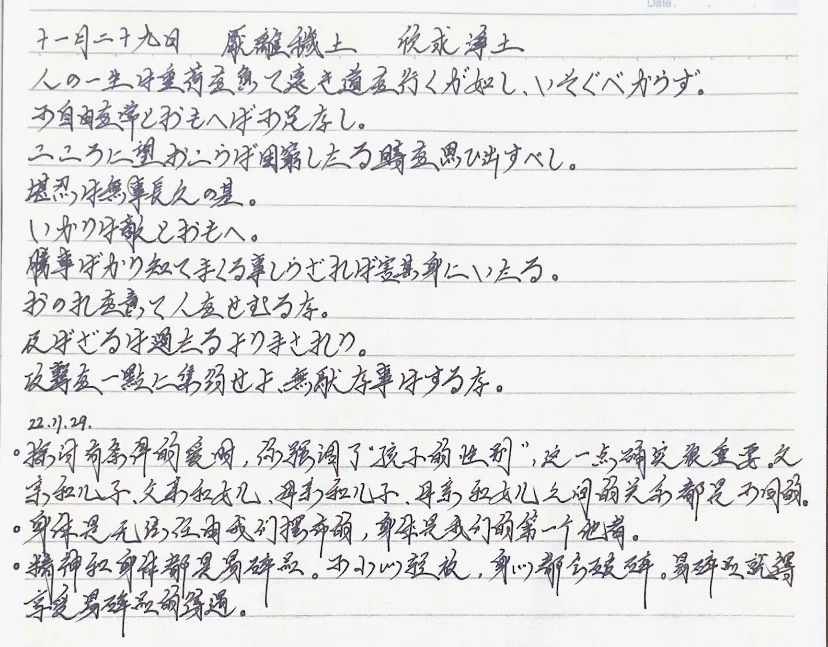 Date.
十一月二十九日 厭離穢土 欣求浄土
人の一生は重荷を負て遠き道を行くが如し、いそぐべからず。
不自由を常とおもへば不足なし。
こころに望おこらば困窮したる時を思ひ出すべし。
堪忍は無事長久の基。
いかりは敵とおもへ。
勝事ばかり知てまくる事しらざれば害其身にいたる。
おのれを責て人をせむるな。
及ばざるは過たるよりまされり。
攻撃を一點に集弱せよ、無駄な事はするな。
22.11.29.
。探讨有条件的爱时,你强调了“孩子的性别”,这一点确实很重要。父
亲和儿子、父亲和女儿、母亲和儿子、母亲和女儿之间的关系都是不同的。
。身体是无法任由我们摆布的,身体是我们的第一个他者。
。精神和身体都是易碎品。不小心轻放,身心都会破碎。易碎品就得
享受易碎品的待遇。